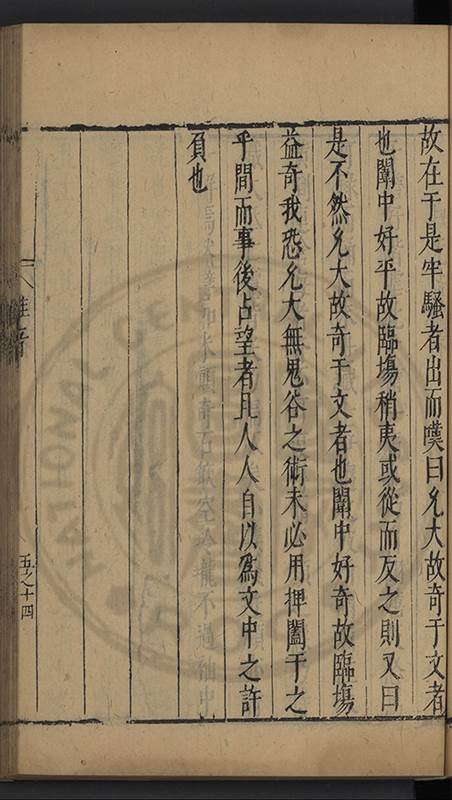 故在于是牢騷者出而嘆曰允大故奇于文者
也闈中好平故臨塲稍夷或從而反之則又曰
是不然允大故奇于文者也闈中好奇故臨塲
益奇我恐允大無鬼谷之術未必用捭闔于之
乎間而事後占望者且人人自以為文中之許
負也
五之十四